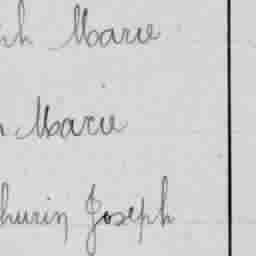 ph Marie
n Marie
hurin Joseph